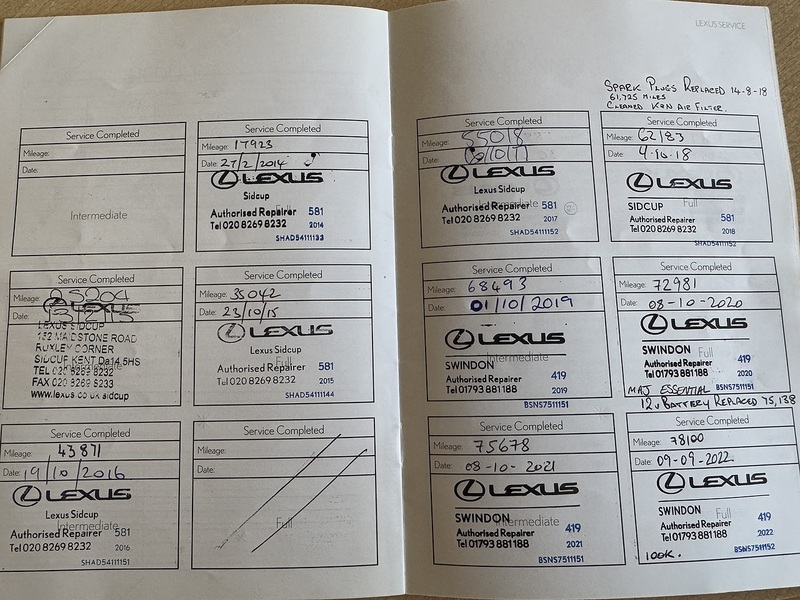 LEXUS SERVICE
Service Completed
Mileage:
Date:
Intermediate
Service Completed
Mileage: 17923
Date: 27/2/2014
LEXUS
Sidcup
Full
Authorised Repairer 581
Tel 020 8269 8232 2014
SHAD54111133
Service Completed
Mileage:
Date:
LEXUS
LEXUS SIDCUP
152 MAIDSTONE ROAD
RUXLEY CORNER
SIDCUP KENT Da14 5HS
TEL 020 8269 8232
FAX 020 8269 8233
www.lexus.co.uk/sidcup
Service Completed
Mileage: 35042
Date: 23/10/15
LEXUS
Lexus Sidcup
Full
Authorised Repairer 581
Tel 020 8269 8232 2015
SHAD54111144
Service Completed
Mileage: 43871
Date: 19/10/2016
LEXUS
Lexus Sidcup
Intermediate
Authorised Repairer 581
Tel 020 8269 8232 2016
SHAD54111151
Service Completed
Mileage:
Date:
Full
SPARK PLUGS REPLACED 14-8-18
61,725 MILES
CLEANED K&N AIR FILTER.
Service Completed
Mileage: 55018
Date:
LEXUS
Lexus Sidcup
Intermediate
Authorised Repairer 581
Tel 020 8269 8232 2017
SHAD54111152
Service Completed
Mileage: 62183
Date: 4.10.18
LEXUS
SIDCUP Full
Authorised Repairer 581
Tel 020 8269 8232 2018
SHAD54111152
Service Completed
Mileage: 68493
Date: 01/10/2019
LEXUS
SWINDON Intermediate
Authorised Repairer 419
Tel 01793 881188 2019
BSNS7511151
Service Completed
Mileage: 72981
Date: 08-10-2020
LEXUS
SWINDON Full
Authorised Repairer 419
Tel 01793 881188 2020
BSNS7511151
MAJ ESSENTIAL
12V BATTERY REPLACED 75,138
Service Completed
Mileage: 75678
Date: 08-10-2021
LEXUS
SWINDON Intermediate
Authorised Repairer 419
Tel 01793 881188 2021
BSNS7511151
Service Completed
Mileage: 78100
Date: 09-09-2022
LEXUS
SWINDON Full
Authorised Repairer 419
Tel 01793 881188 2022
BSNS7511152
100K.